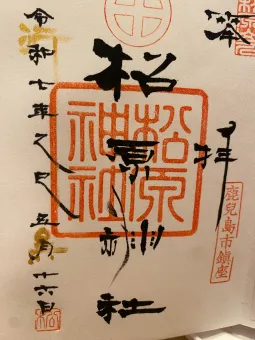 奉拝
鹿兒島市鎮座
松原神社
松原神社
令和七年乙巳五月十六日